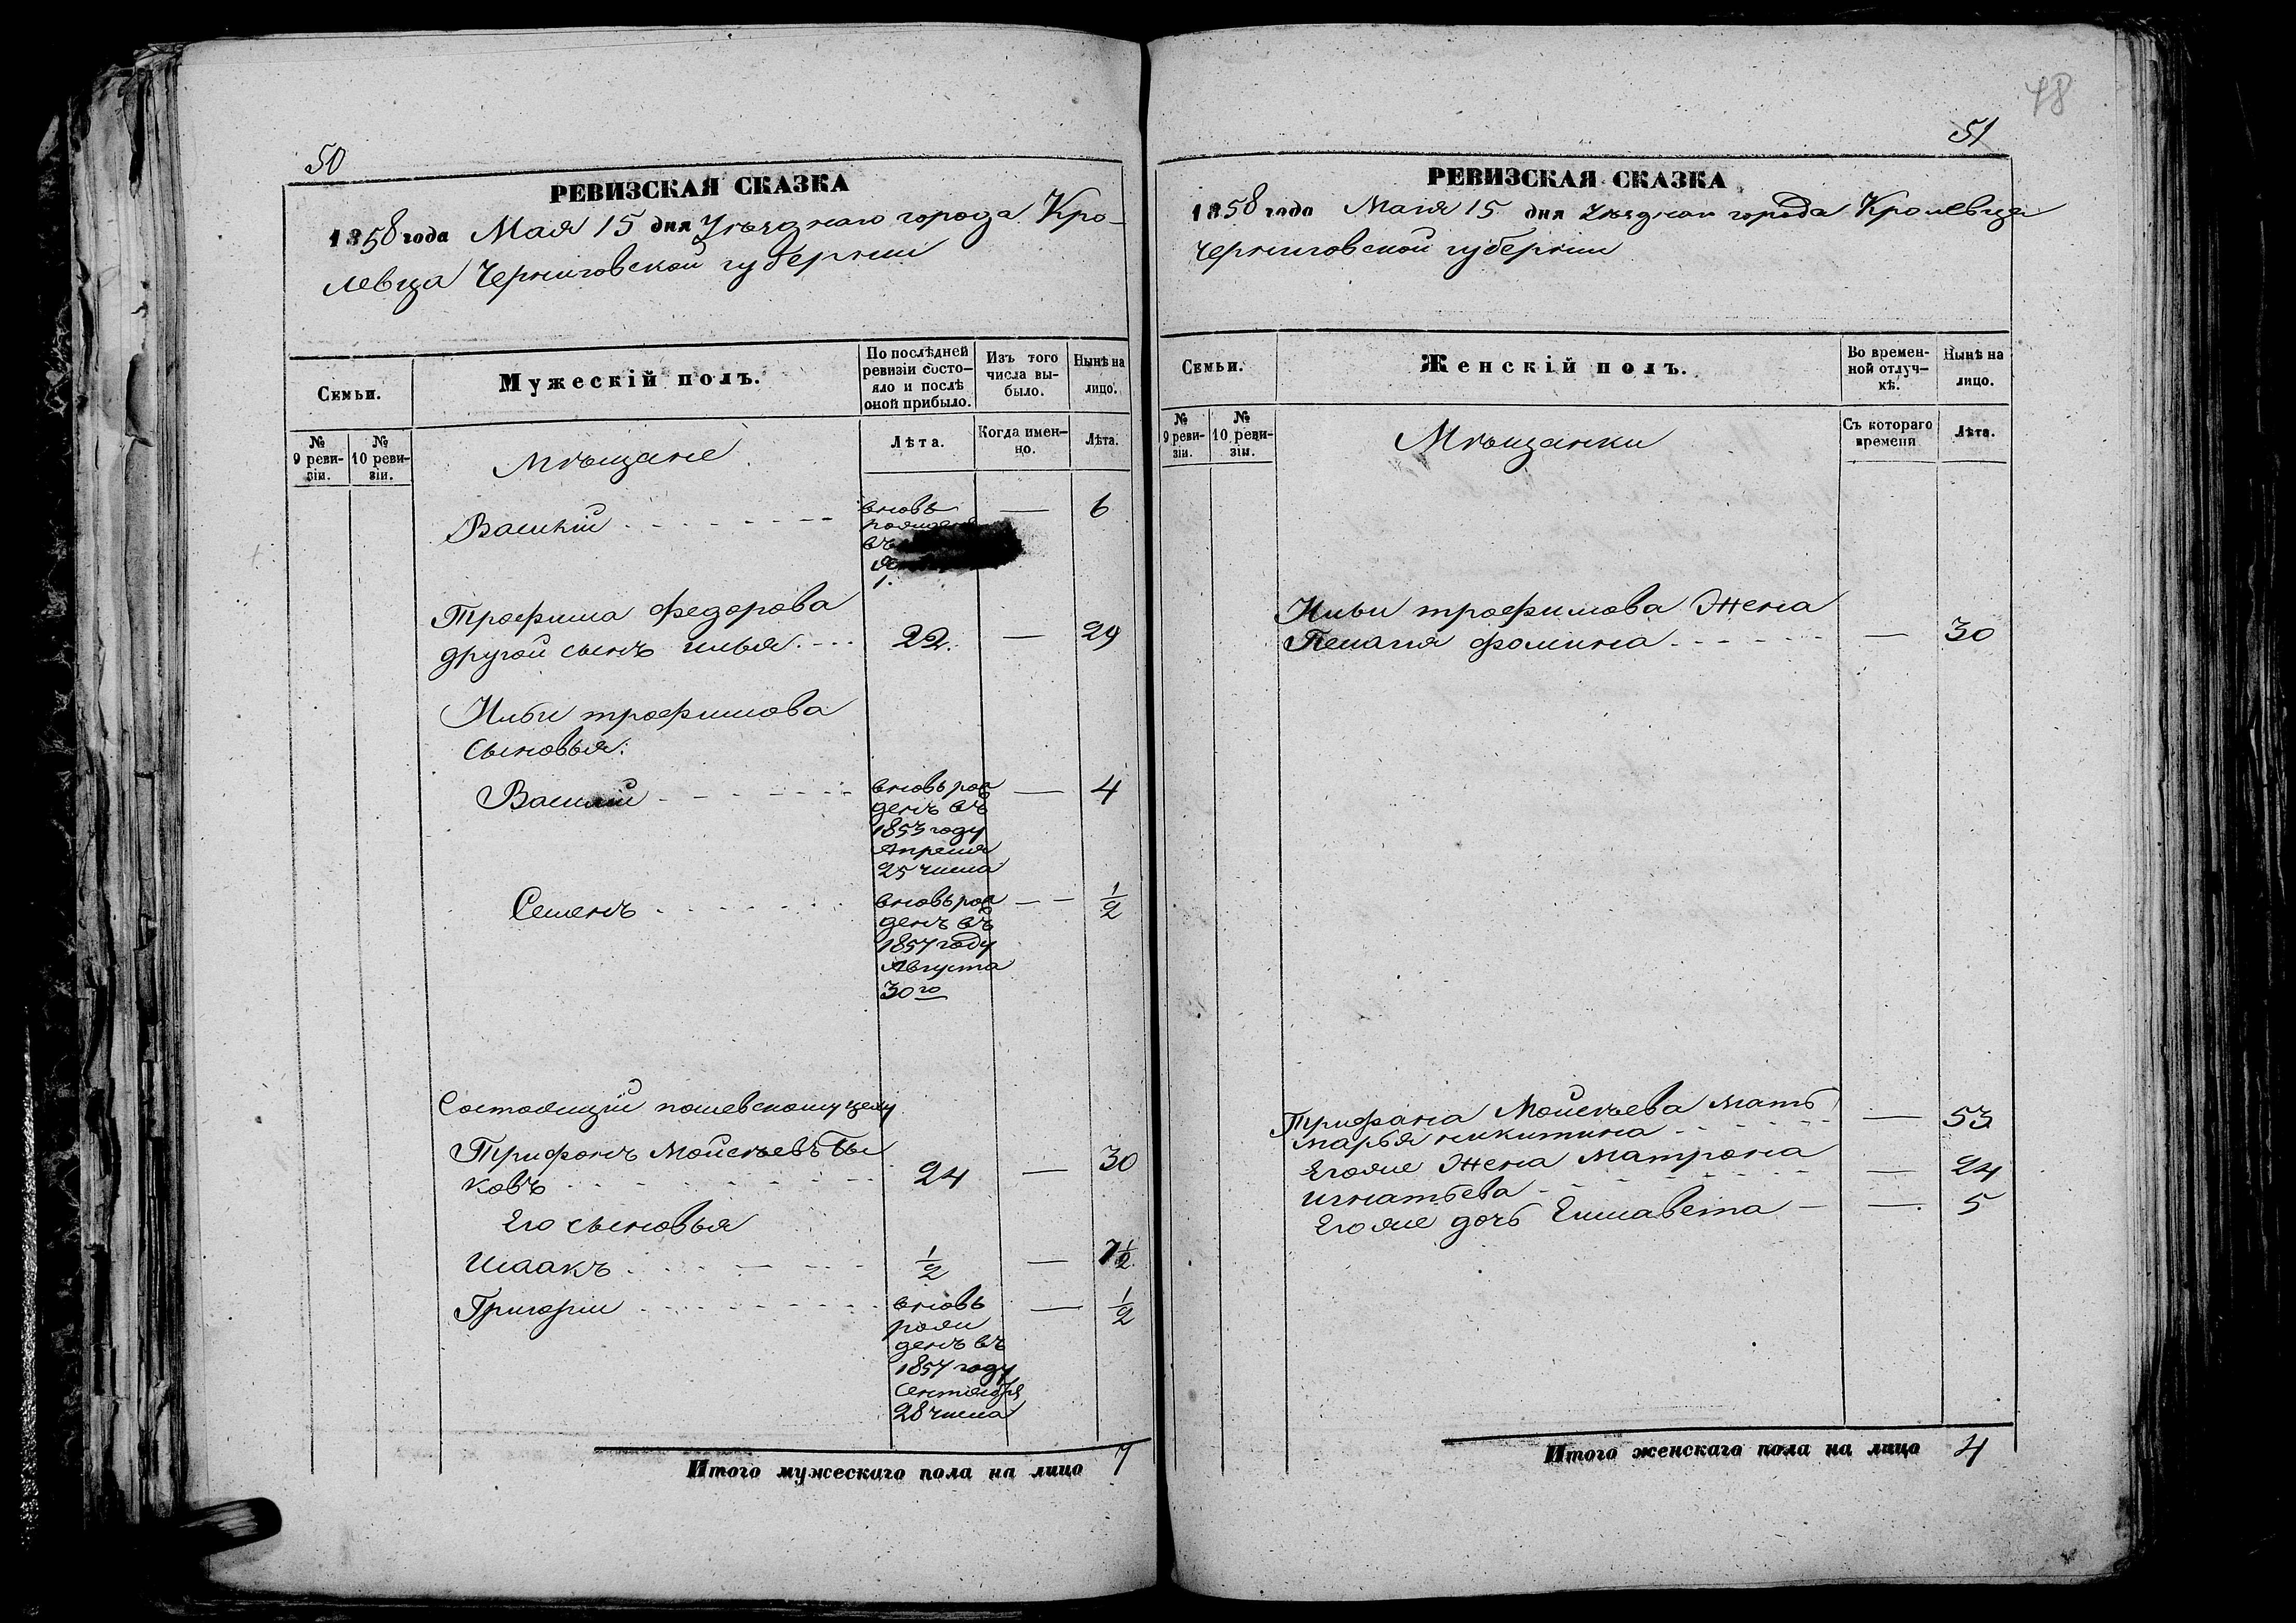 50
РЕВИЗСКАЯ СКАЗКА
1858 года Мая 15 дня Уѣзднаго города Кро-
левца Черниговской губерніи
Семьи.
Мужескій полъ.
По послѣдней ревизіи состо-яло и послѣ оной прибыло.
Изъ того числа вы-было.
Нынѣ на лицо.
№ 9 реви-зіи.
№ 10 реви-зіи.
Мѣщане
Лѣта.
Когда имен-но.
Лѣта.
Василій — 6
вновь
рожденъ
въ
1.
Трофима Федорова
другой сынъ илья 22. — 29
Ильи трофимова
сыновья:
Василій — 4
вновь рож
денъ въ
1853 году
Апреля
25 числа
Семенъ — 1/2
вновь рож
денъ въ
1857 году
Августа
30го
Состоящій по
Трифонъ Мойсѣевъ Бы
ковъ 24 — 30
Его сыновья
Исаакъ 1/2 — 7 1/2
Григорій — 1/2
вновь
рож
денъ въ
1857 году
Сентября
28 числа
Итого мужескаго пола на лицо 7
48
51
РЕВИЗСКАЯ СКАЗКА
1858 года Маія 15 дня Уѣзднаго города Кролевца
Черниговской губерніи
Семьи.
Женскій полъ.
Во времен-ной отлуч-кѣ.
Нынѣ на лицо.
№ 9 реви-зіи.
№ 10 реви-зіи.
Мѣщанки
Съ котораго времени
Лѣта.
Ильи трофимова Жена
Пелагея фомина — 30
Трифона Мойсѣева мать — 53
марья никитина
Егоже Жена Матрона — 24
игнатьева
Егоже дочь Елисавета — 5
Итого женскаго пола на лицо 4